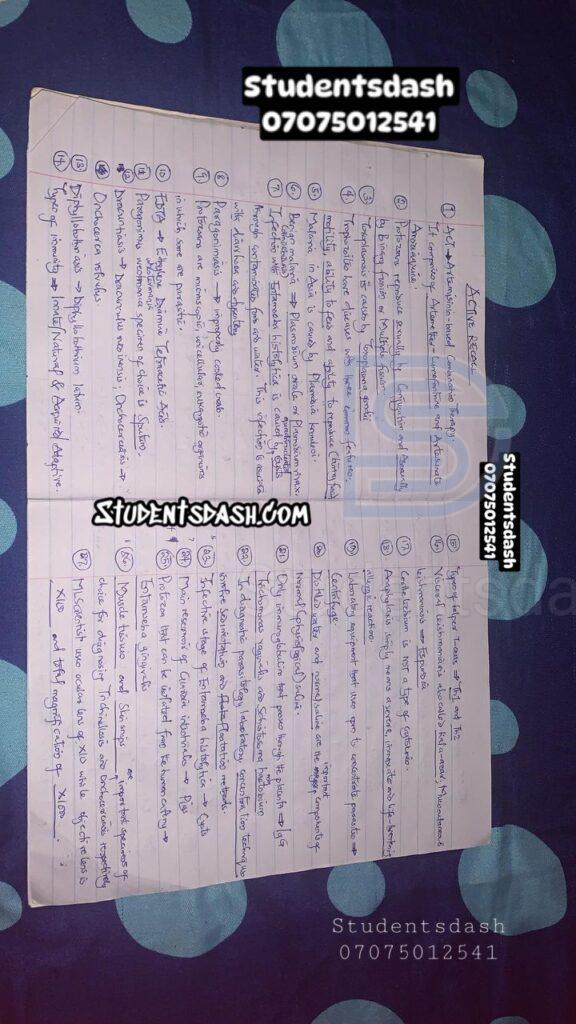 Studentsdash
07075012541
ACTIVE RECALL
① ACT → Artemisinin-based Combination Therapy.
It comprises of Artemether-Lumefantrine and Artesunate
Amodiaquine.
② Protozoans reproduce sexually by Conjugation and Asexually
by Binary fission or Multiple fission.
③ Toxoplasmosis is caused by Toxoplasma gondii
④ Trophozoites are of with three common features:
motility, ability to feed and ability to reproduce (binary fission)
⑤ Malaria in Asia is caused by Plasmodia knowlesi.
⑥ Benign malaria → Plasmodium ovale or Plasmodium vivax.
⑦ Infection with Entamoeba histolytica is caused by cysts
(Amoebiasis) quadrinucleated
through contaminated food and water. This infection is associated
with diarrhoea and dysentery
⑧ Paragonimiasis → improperly cooked crab.
⑨ Protozoans are microscopic, unicellular, eukaryotic organisms
in which some are parasitic.
⑩ EDTA → Ethylene Diamine Tetraacetic Acid.
⑪ Paragonimus westermani specimen of choice is Sputum
⑫ Dracuntiasis → Dracunculus medinensis. Onchocerciasis →
Onchocerca volvulus.
⑬ Diphyllobothriasis → Diphyllobothrium latum.
⑭ Types of immunity → Innate/Natural & Acquired/Adaptive.
⑮ Types of helper T-cells → Th1 and Th2
⑯ Visceral leishmaniasis also called Kala-azar, Mucocutaneous
leishmaniasis → Espundia
⑰ is not a type of
⑱ Anaphylaxis simply means a severe, immediate and life-threatening
allergic reaction.
⑲ Laboratory equipment that uses rpm to concentrate parasites →
Centrifuge.
⑳ Distilled water and normal saline are the important components of
normal (physiological) saline.
㉑ Only immunoglobulin that passes through the placenta → IgG
Trichomonas vaginalis and Schistosoma haematobium
㉒ In diagnostic parasitology laboratory concentration techniques
involve Sedimentation and Floatation methods.
㉓ Infective stage of Entamoeba histolytica → Cysts
㉔ Main reservoir of → Pigs
㉕ Protozoa that can be isolated from the human cavity →
Entamoeba gingivalis
㉖ Muscle tissues and Skin snips are important specimens of
choice for diagnosing Trichinellosis and Onchocerciasis respectively
㉗ MLScientist uses ocular lens of X10 while objective lens is
X100 and total magnification of X1000.
STUDENTSDASH.COM
Studentsdash
07075012541
Studentsdash
07075012541